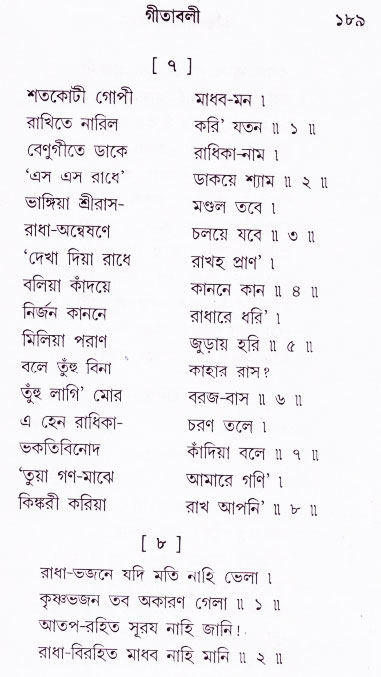 গীতাবলী ১৮৯
[ ৭ ]
শতকোটী গোপী মাধব-মন ।
রাখিতে নারিল করি' যতন ॥ ১ ॥
বেণুগীতে ডাকে রাধিকা-নাম ।
'এস এস রাধে' ডাকয়ে শ্যাম ॥ ২ ॥
ভাঙ্গিয়া শ্রীরাস- মণ্ডল তবে ।
রাধা-অন্বেষণে চলয়ে যবে ॥ ৩ ॥
'দেখা দিয়া রাধে রাখহ প্রাণ' ।
বলিয়া কাঁদয়ে কাননে কান ॥ ৪ ॥
নির্জন কাননে রাধারে ধরি' ।
মিলিয়া পরাণ জুড়ায় হরি ॥ ৫ ॥
বলে তুঁহু বিনা কাহার রাস?
তুঁহু লাগি' মোর বরজ-বাস ॥ ৬ ॥
এ হেন রাধিকা- চরণ তলে ।
ভকতিবিনোদ কাঁদিয়া বলে ॥ ৭ ॥
'তুয়া গণ-মাঝে আমারে গণি' ।
কিঙ্করী করিয়া রাখ আপনি' ॥ ৮ ॥
[ ৮ ]
রাধা-ভজনে যদি মতি নাহি ভেলা ।
কৃষ্ণভজন তব অকারণ গেলা ॥ ১ ॥
আতপ-রহিত সূরয নাহি জানি!
রাধা-বিরহিত মাধব নাহি মানি ॥ ২ ॥